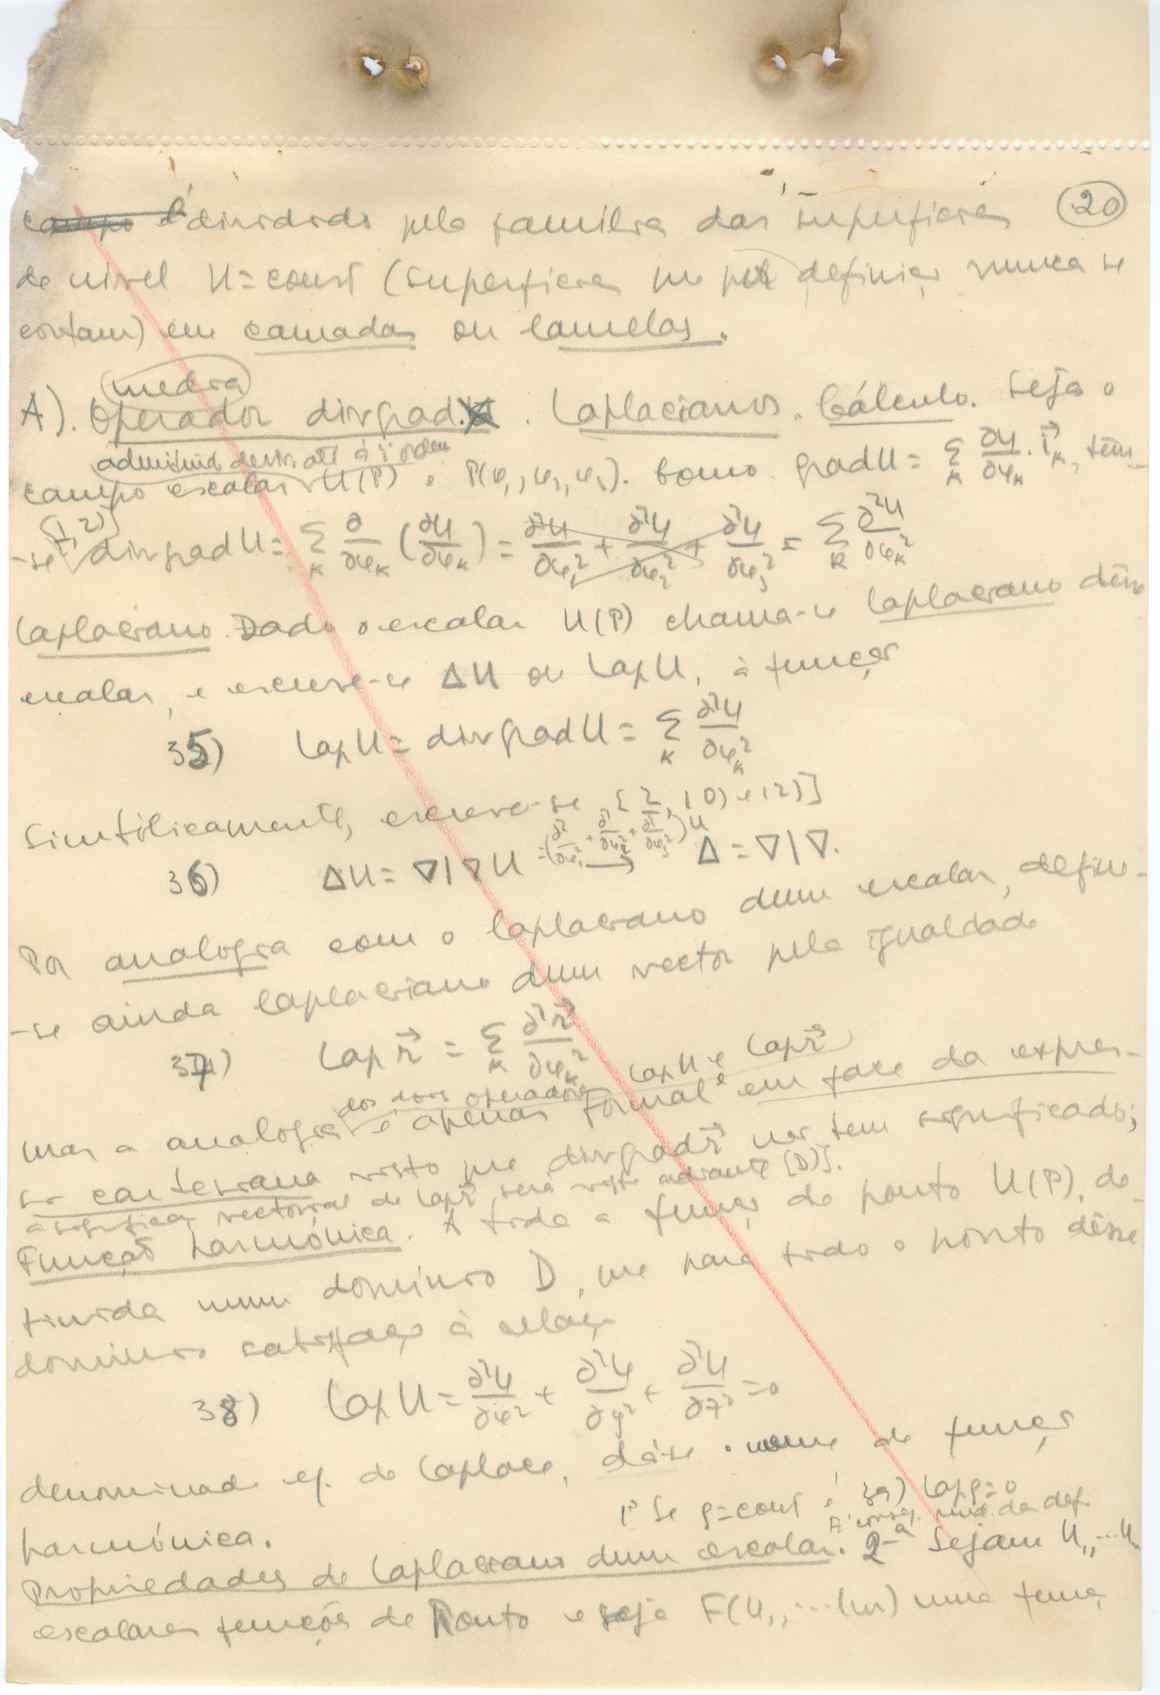 campo é dividido pela família das superfícies (20)
de nível U=const (superfícies que por definição nunca se
cortam) em camadas ou lamelas.
media
A). Operador divgrad. Laplacianos. Cálculo. Seja o
admitindo deriv. até à 2ª ordem
campo escalar U(P) e P(x₁, x₂, x₃). Como gradU = Σ_K ∂U/∂x_K · i⃗_K, tem-
(1,2)
-se divgradU = Σ_K ∂/∂x_K (∂U/∂x_K) = ∂²U/∂x₁² + ∂²U/∂x₂² + ∂²U/∂x₃² = Σ_K ∂²U/∂x_K²
Laplaciano. Dado o escalar U(P) chama-se laplaciano dêsse
escalar, e escreve-se ΔU ou LapU, à função
35) LapU = divgradU = Σ_K ∂²U/∂x_K²
Simbólicamente, escreve-se [2, 10) e 12)]
36) ΔU = ∇|∇U = (∂²/∂x₁² + ∂²/∂x₂² + ∂²/∂x₃²)U → Δ = ∇|∇.
Por analogia com o laplaciano dum escalar, define-
-se ainda laplaciano dum vector pela igualdade
37) Lap r⃗ = Σ_K ∂²r⃗/∂x_K²
dos dois operadores LapU e Lap r⃗
mas a analogia é apenas formal e em face da expres-
são cartesiana visto que divgrad r⃗ não tem significado;
a significação vectorial de Lap r⃗ será vista adiante [D)].
Função harmónica. A toda a função do ponto U(P), de-
finida num domínio D, que para todo o ponto dêsse
domínio satisfaça à relação
38) LapU = ∂²U/∂x² + ∂²U/∂y² + ∂²U/∂z² = 0
denominada eq. de Laplace, dá-se o nome de função
harmónica.
1ª Se φ=const é 39) Lapφ=0
da def.
Propriedades do Laplaciano dum escalar. 2ª Sejam U₁, ... Uₙ
escalares funções de Ponto e seja F(U₁, ... Uₙ) uma função